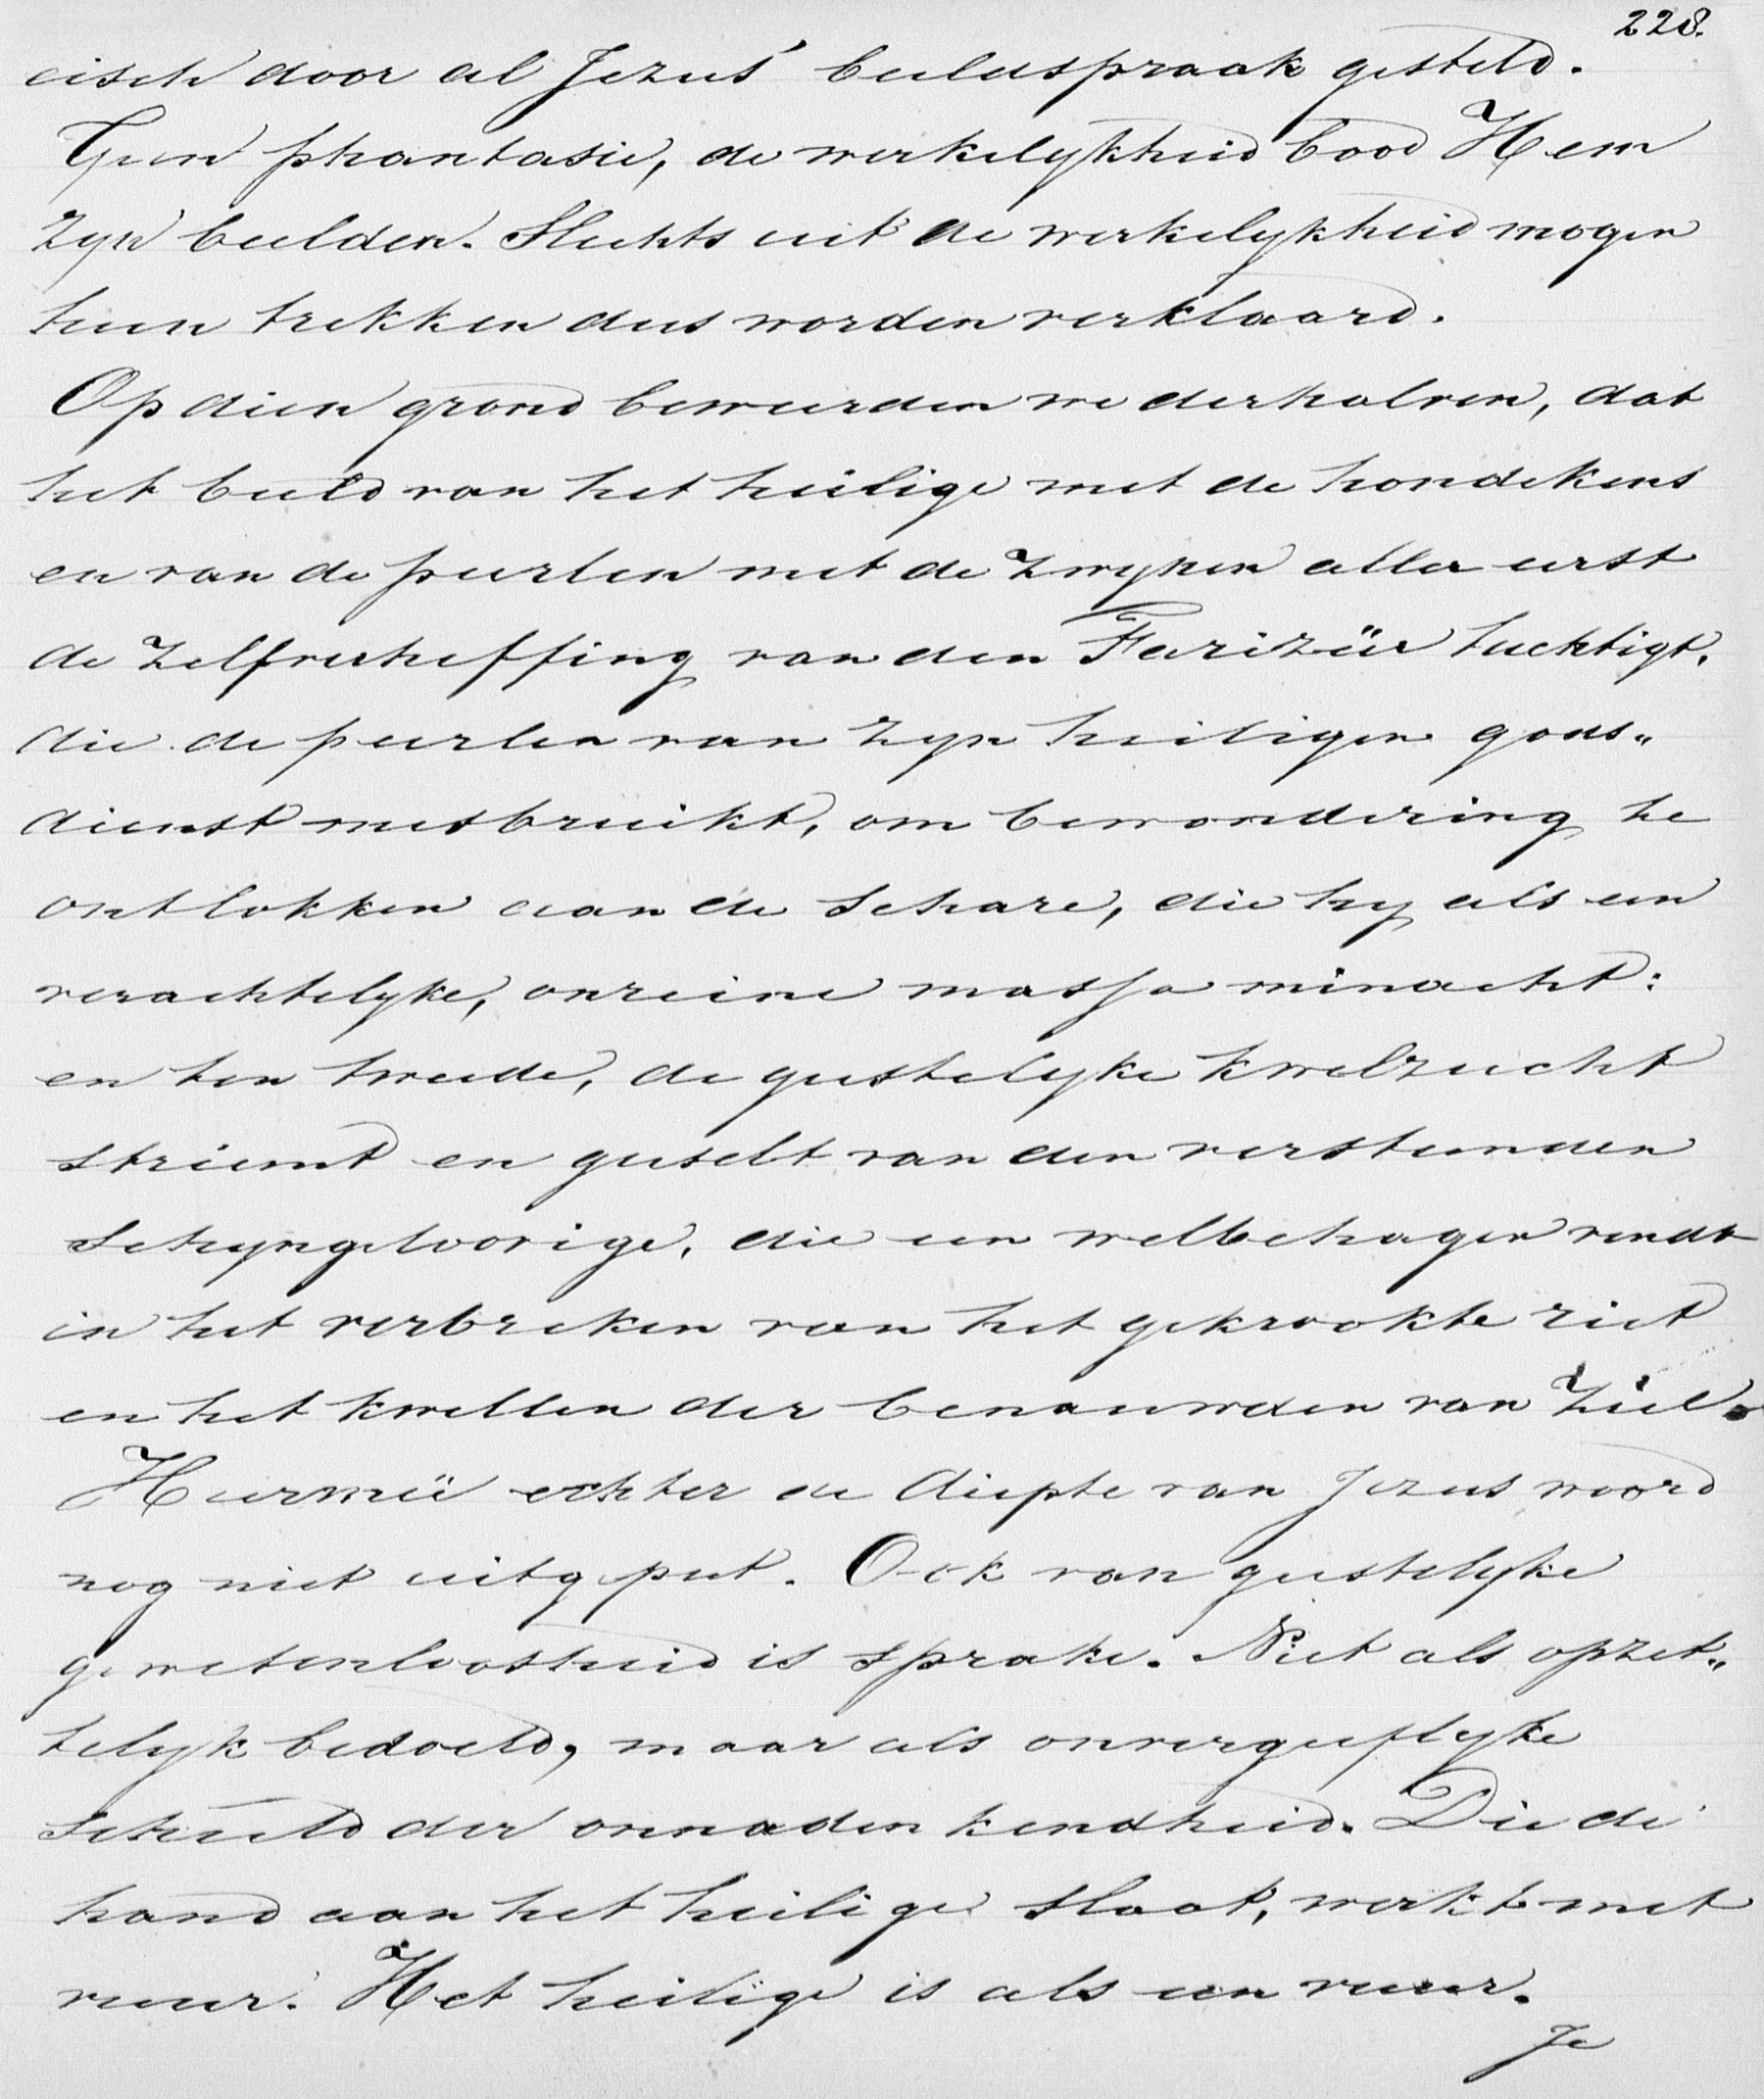 228.
eisch door al Jezus' beeldspraak gesteld.
Geen phantasie, de werkelykheid bood Hem
zyn beelden. Slechts uit de werkelykheid mogen
hun trekken dus worden verklaard.
Op dien grond beweerden we derhalven, dat
het beeld van het heilige met de hondekens
en van de peerlen met de zwynen aller eerst
de zelfverheffing van den Farizeër tuchtigt,
die de peerlen van zyn heiligen gods„
dienst misbruikt, om bewondering te
ontlokken aan de schare, die hy als een
verachtelyke, onreine massa minacht:
en ten tweede, de geestelyke kwelzucht
striemt en geeselt van den versteenden
schyngeloovige, die een welbehagen vindt
in het verbreken van het gekrookte riet
en het kwellen der benauwden van ziel.
Hiermeê echter de diepte van Jezus woord
nog niet uitgeput. Ook van geestelyke
gewetenloosheid is sprake. Niet als opzet„
telyk bedoeld, maar als onvergeeflyke
schuld der onnadenkendheid. Die de
hand aan het heilige slaat, werkt met
vuur. Het heilige is als een vuur.
Je